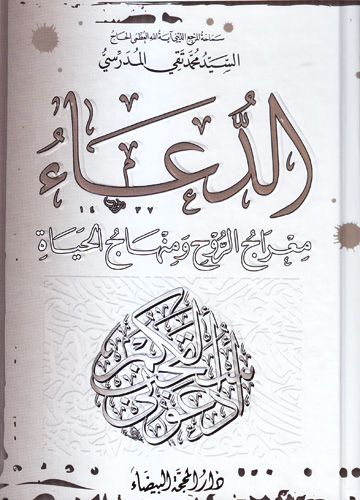 سماحة المرجع الديني آية الله العظمى الحاج
السيد محمد تقي المدرسي
الدُّعَاءُ
١٤٢٧
مِعْرَاجُ الرُّوحِ وَمِنْهَاجُ الحَيَاةِ
دار المحجة البيضاء